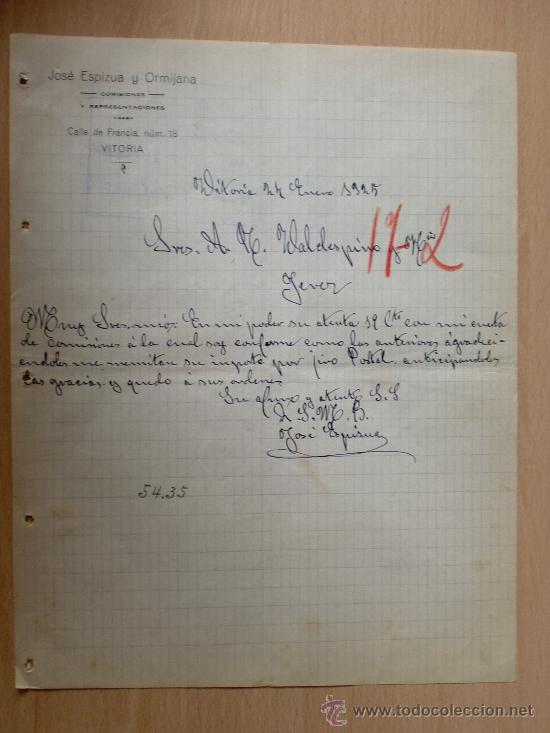 José Espizua y Ormijana
COMISIONES
Y REPRESENTACIONES
Calle de Francia, núm. 18
VITORIA
Vitoria 27 Enero 1925
Sres. A. R. Valdespino y Hno
17-2
Jerez
Muy Sres. mios: En mi poder su atenta 19 Cte con mi cuenta
de Comisiones á la cual soy conforme como las anteriores ágradeci-
endoles me remitan su impote por jiro Postal. anticipandoles
las gracias. y quedo á sus ordenes
Su afmo y atento S. S
Q. S. M. B.
José Espizua
54.35
todocoleccion
www.todocoleccion.net